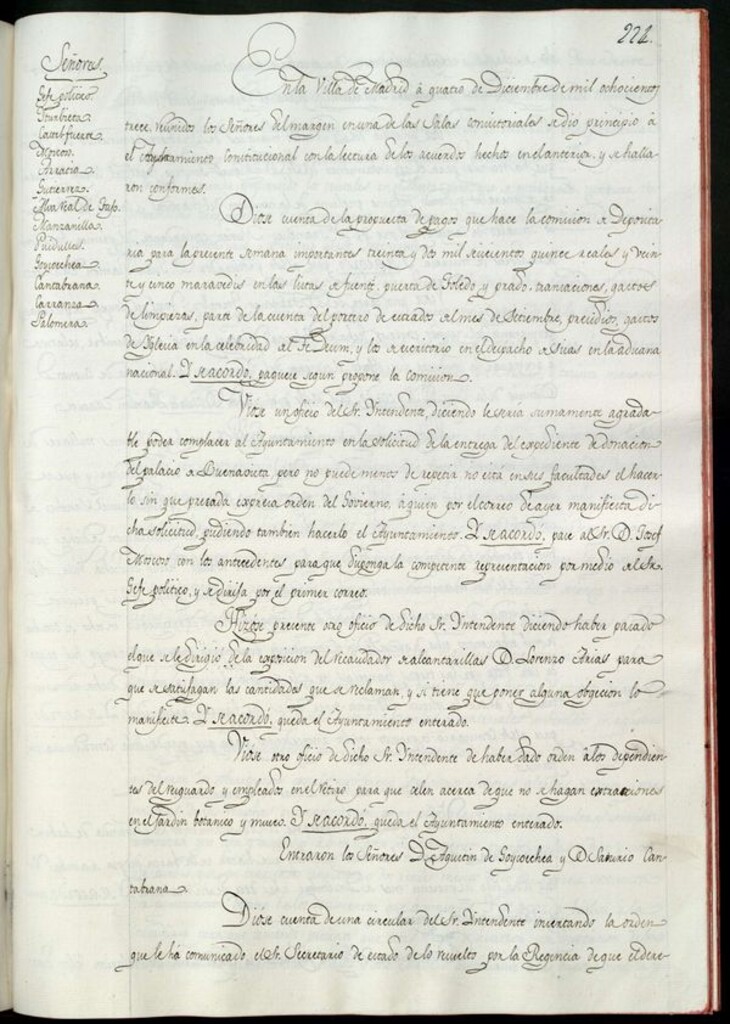 222.
Señores.
Gefe politico.
Iturbieta.
Castelfuerte.
Moscoso.
Arratia.
Gutierrez.
Manzanilla.
Paidulles.
Goycoechea.
Cantabrana.
Carranza.
Palomera.
En la Villa de Madrid á quatro de Diciembre de mil ochocientos
trece, reunidos los Señores del margen en una de las Salas consistoriales se dio principio á
el Ayuntamiento Constitucional con la lectura de los acuerdos hechos en el anterior, y se halla-
ron conformes.
Diose cuenta de la propuesta de pagos que hace la comision de Deposita-
ria para la presente semana importantes treinta y dos mil seiscientos quince reales y vein-
te y cinco maravedis en las listas de fuente, puerta de Toledo y prado, transaciones, gastos
de limpiezas, parte de la cuenta del portero de estrados del mes de Setiembre, presidios, gastos
de Iglesia en la celebridad del Te Deum, y los de escritorio en el despacho de sisas en la aduana
nacional. Y se acordó, paguese segun propone la comision.
Viose un oficio del Sr. Intendente, diciendo le seria sumamente agrada-
ble poder complacer al Ayuntamiento en la solicitud de la entrega del expediente de donacion
del palacio de Buenavista, pero no puede menos de repetir no está en sus facultades el hacer-
lo sin que preceda expresa orden del Govierno, á quien por el correo de ayer manifiesta di-
cha solicitud, pudiendo tambien hacerlo el Ayuntamiento. Y se acordó, pase al Sr. D. Josef
Moscoso con los antecedentes para que disponga la competente representacion por medio del Sr.
Gefe politico, y se dirija por el primer correo.
Hizose presente otro oficio de dicho Sr. Intendente diciendo haber pasado
el que se le dirigió de la exposicion del recaudador de alcantarillas D. Lorenzo Arias para
que se satisfagan las cantidades que se reclaman, y si tiene que poner alguna obgecion lo
manifieste. Y se acordó, queda el Ayuntamiento enterado.
Viose otro oficio de dicho Sr. Intendente de haber dado orden á los dependien-
tes del resguardo y empleados en el retiro para que celen acerca de que no se hagan extracciones
en el Jardin botanico y museo. Y se acordó, queda el Ayuntamiento enterado.
Entraron los Señores D. Agustin de Goycoechea y D. Saturio Can-
tabrana.
Diose cuenta de una circular del Sr. Intendente insertando la orden
que le há comunicado el Sr. Secretario de estado de lo resuelto por la Regencia de que el dere-